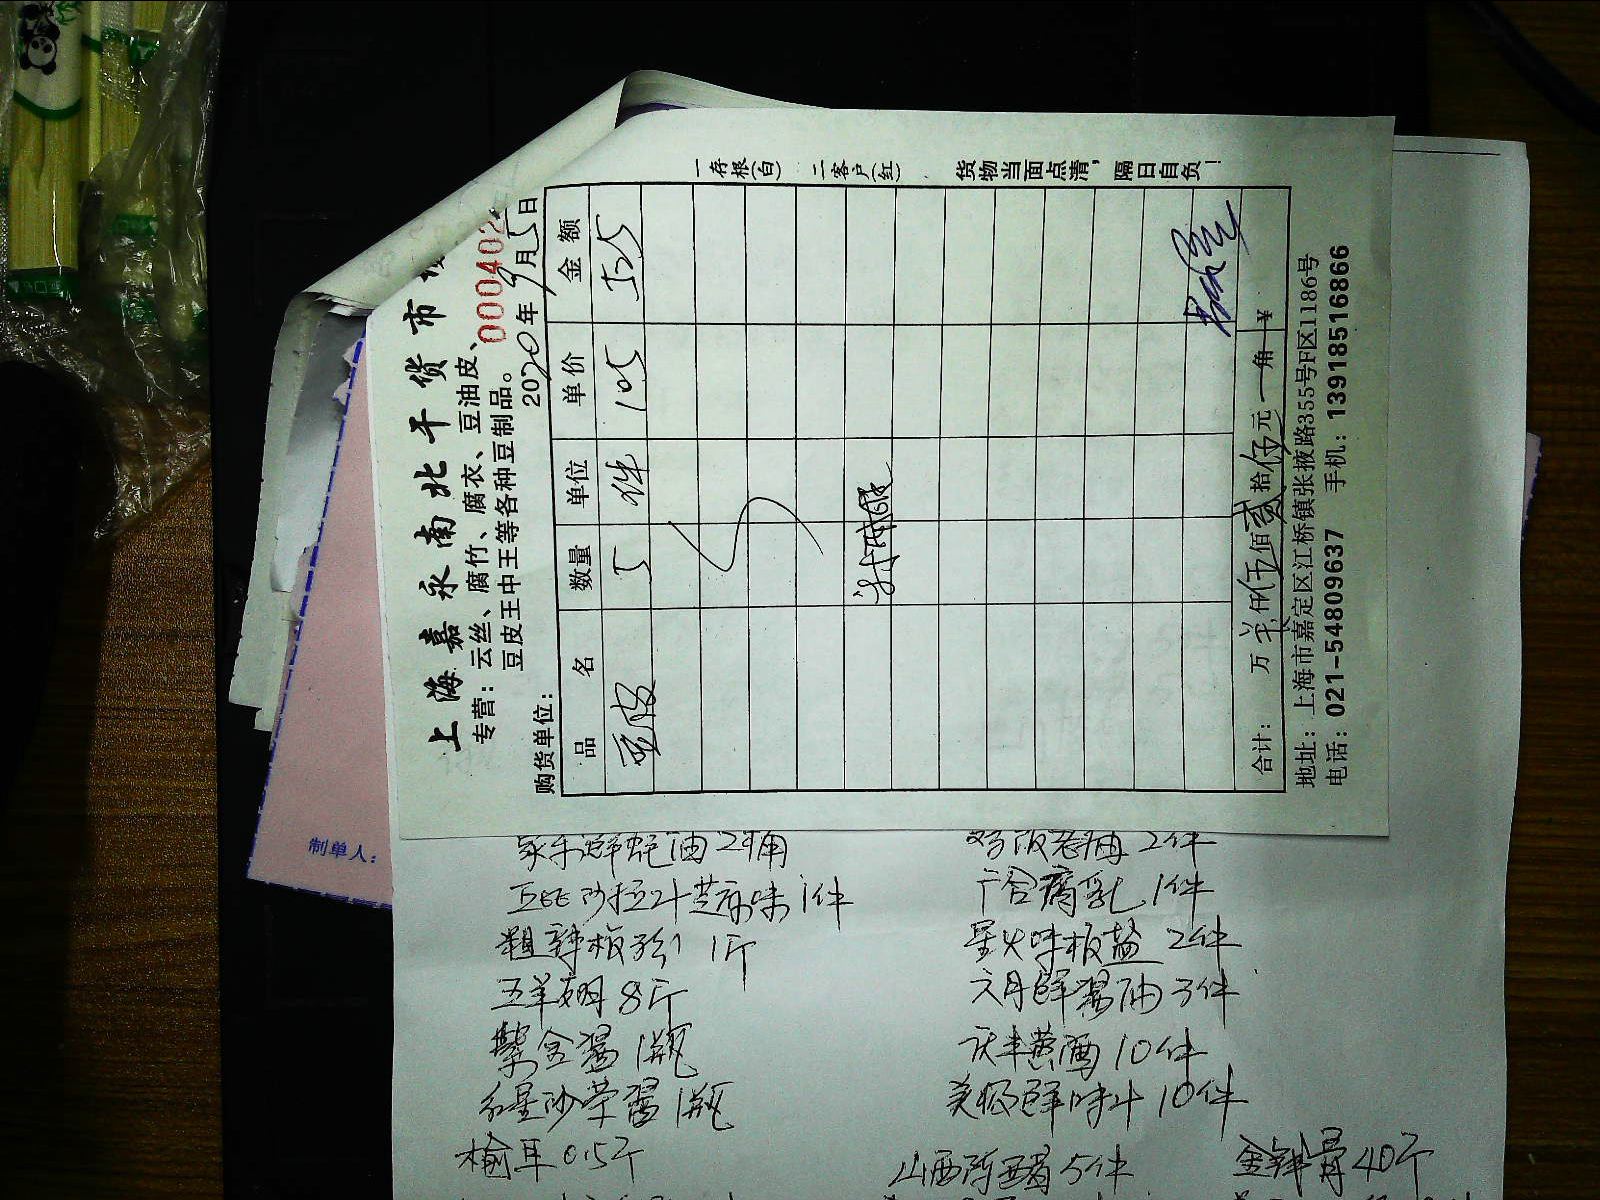 上海嘉永南北干货市
专营：云丝、腐竹、腐衣、豆油皮、
豆皮王中王等各种豆制品。
000402
购货单位： 2020年9月5日
品名 数量 单位 单价 金额
豆皮 5 件 105 525
合计： 万 伍佰贰拾伍元 角 ¥
地址：上海市嘉定区江桥镇张掖路355号F区1186号
电话：021-54809637 手机：13918516866
一存根(白) 二客户(红) 货物当面点清，隔日自负！
制单人：
家乐鲜蚝油2桶
2件
沙拉汁芝麻味1件
广合腐乳1件
粗辣椒粉1斤
星火味极盐2件
五羊 8斤
六月鲜酱油3件
紫金酱1瓶
黄酒10件
红星沙茶酱1瓶
美极鲜味汁10件
榆耳0.5斤
山西陈醋5件
金钟骨40斤